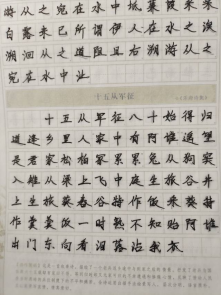 游从之宛在水中坻蒹葭采采
白露未已所谓伊人在水之涘
溯洄从之道阻且右溯游从之
宛在水中沚
十五从军征
十五从军征八十始得归
道逢乡里人家中有阿谁遥望
是君家松柏冢累累兔从狗窦
入雉从梁上飞中庭生旅谷井
上生旅葵舂谷持作饭采葵持
作羹羹饭一时熟不知贻阿谁
出门东向看泪落沾我衣